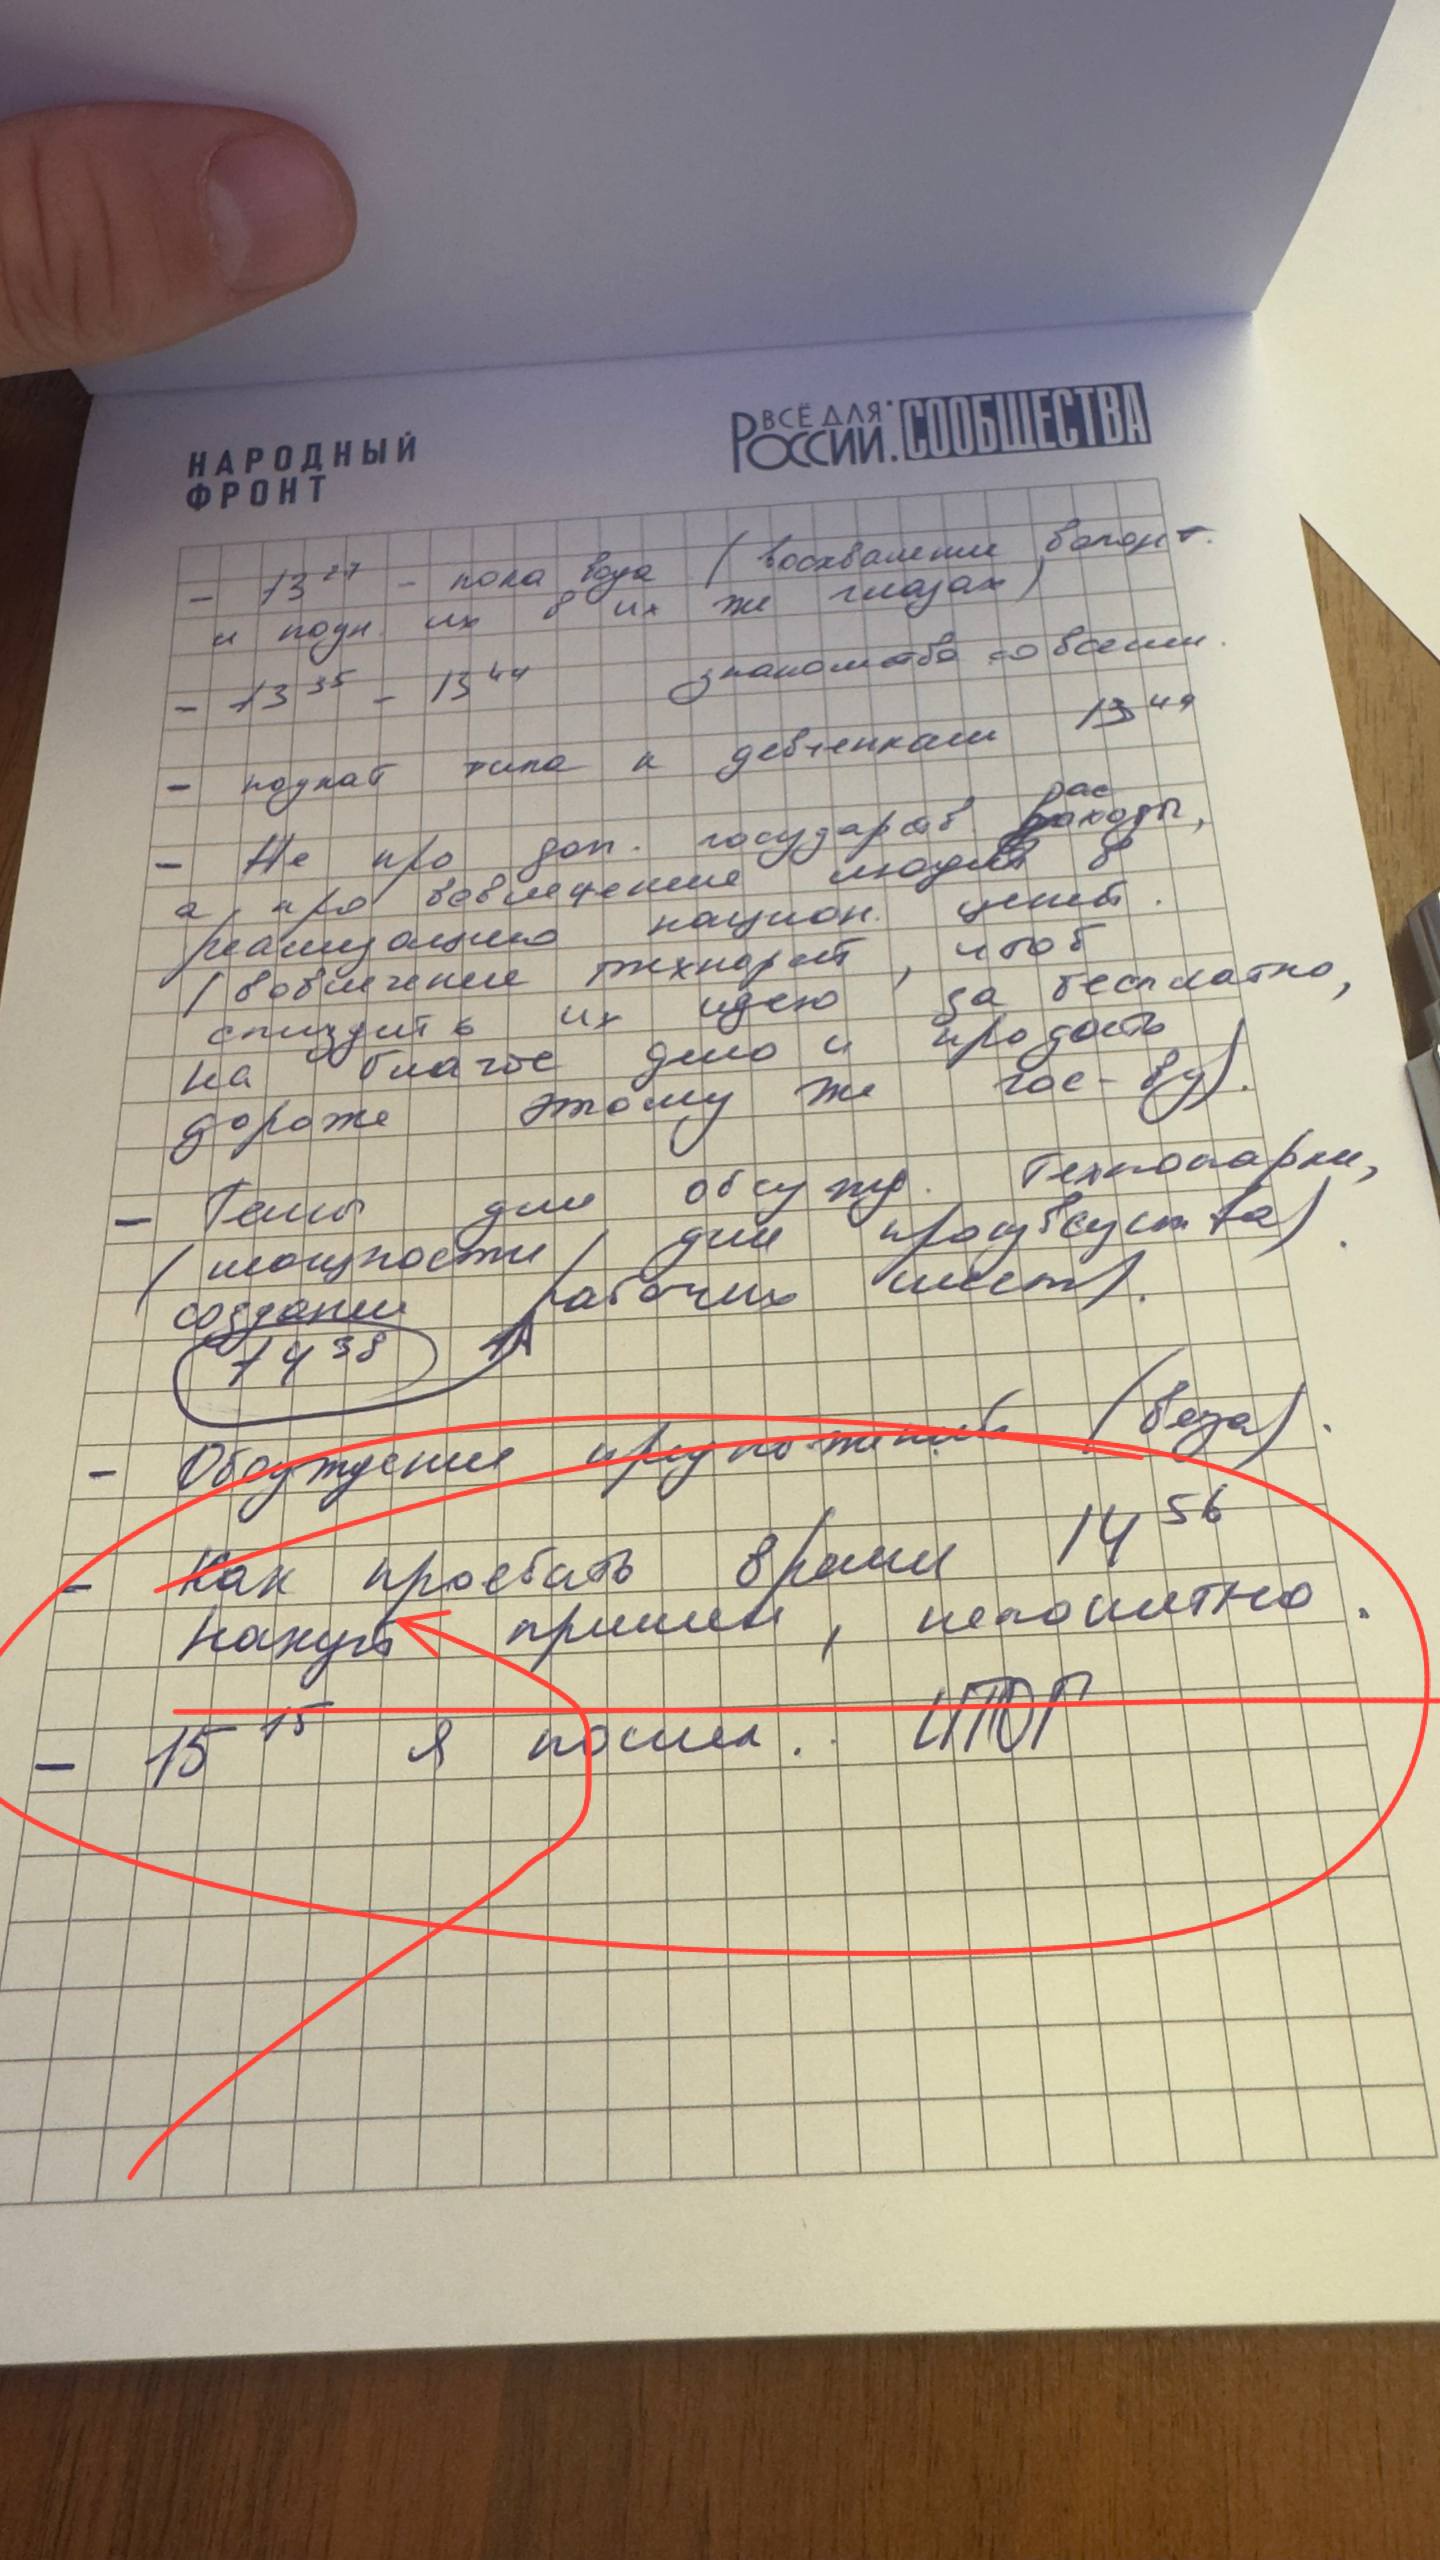 НАРОДНЫЙ
ФРОНТ
ВСЁ ДЛЯ
РОССИИ. СООБЩЕСТВА
- 13 27 - пока вода (восхваление волонт.
и подн. их в их же глазах)
- 13 35 - 13 44 знакомство со всеми.
- подкат типа к девченкам 13 49
рас
- Не про доп. государств ходы,
а про вовлечение людей в
реализацию национ. целей.
(вовлечение технарей, чтоб
спиздить их идею за бесплатно,
на благое дело и продать
дороже этому же гос-ву).
- Темы для обсужд. Технопарки,
(мощности для произв
создании рабочих мест).
14 38
- Обсуждение предложений (вода).
- Как проебать время 14 56
Нахуя пришел, непонятно.
- 15 15 я пошел. ИТОГ